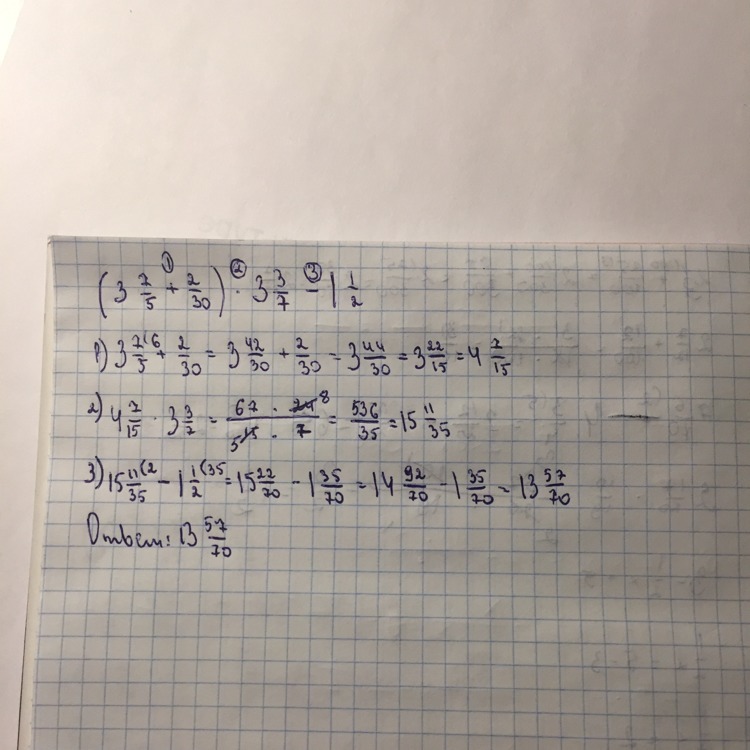 (3 7/5 + 2/30) · 3 3/7 - 1 1/2
① ② ③
1) 3 7/5 (6 + 2/30 = 3 42/30 + 2/30 = 3 44/30 = 3 22/15 = 4 7/15
2) 4 7/15 · 3 3/7 = 67 · 24 8 / 5 15 · 7 = 536/35 = 15 11/35
3) 15 11/35 (2 - 1 1/2 (35 = 15 22/70 - 1 35/70 = 14 92/70 - 1 35/70 = 13 57/70
Ответ: 13 57/70